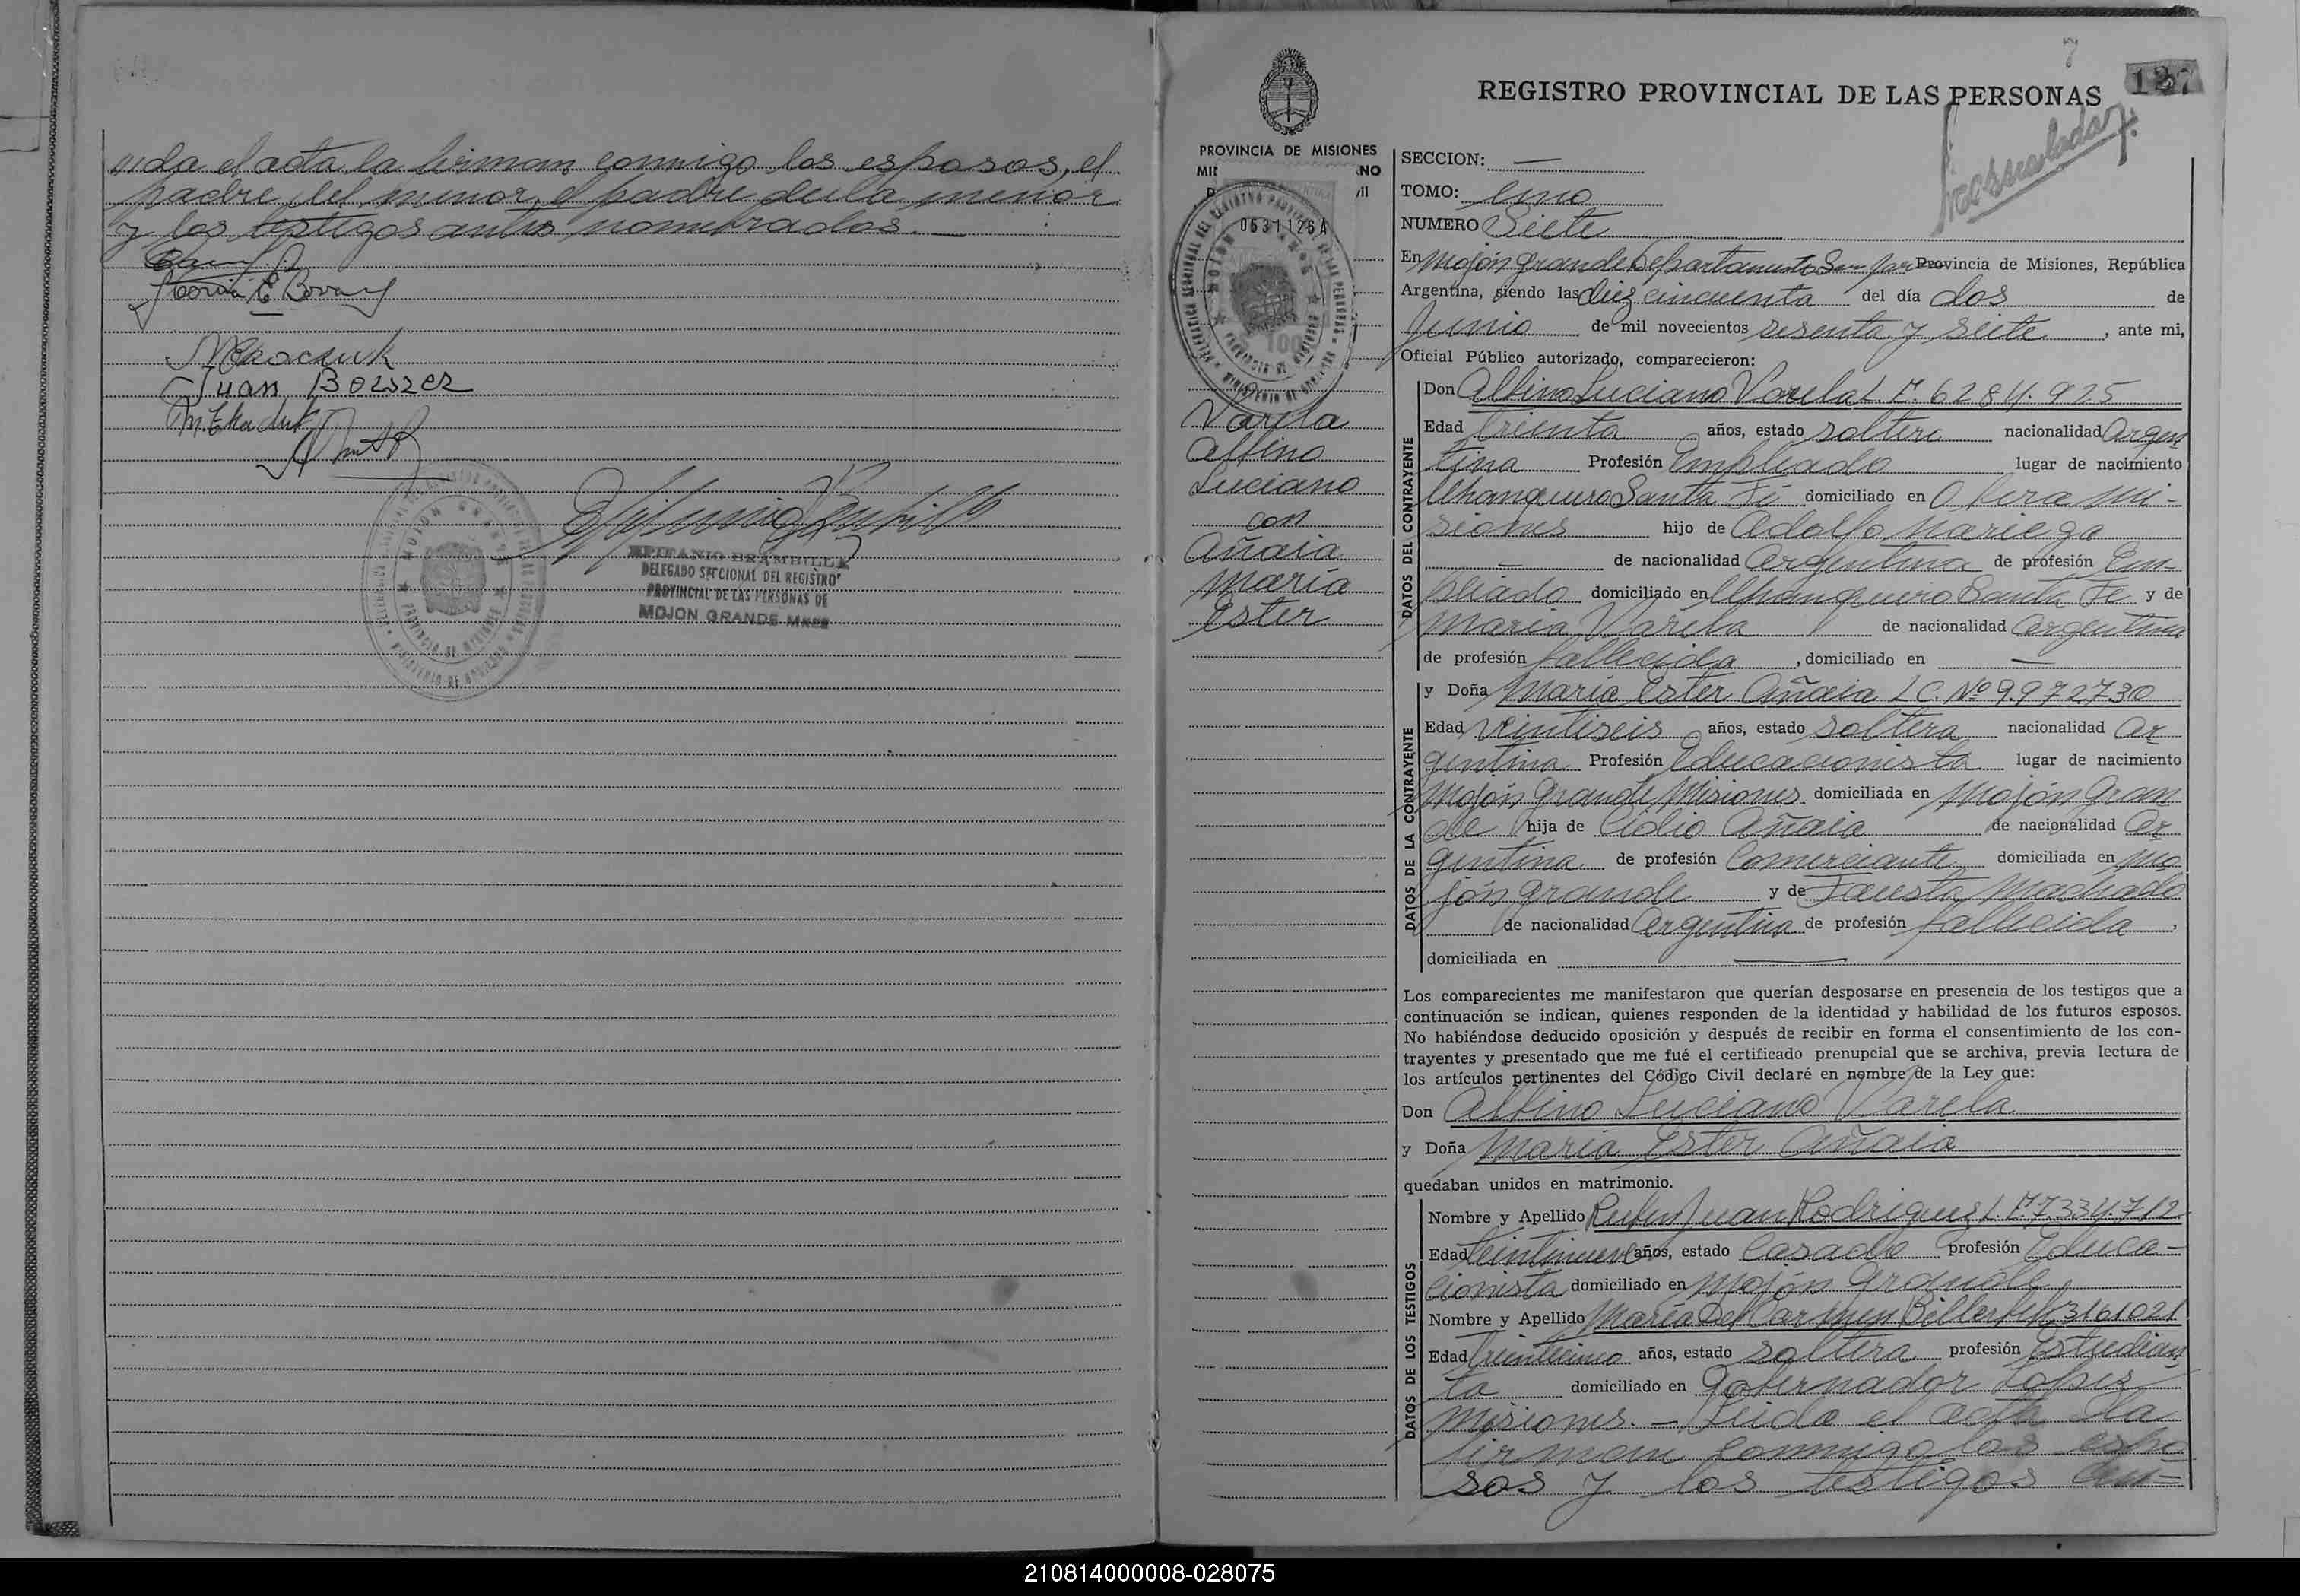 ///da el acta la firman conmigo los esposos, el
padre del menor, el padre de la menor
y los testigos antes nombrados. —
Juan Boiszez
EPIFANIO BRAMBILLA
DELEGADO SECCIONAL DEL REGISTRO
PROVINCIAL DE LAS PERSONAS DE
MOJON GRANDE Mnes
7
127
REGISTRO PROVINCIAL DE LAS PERSONAS
PROVINCIA DE MISIONES
0631126A
Varela
Albino
Luciano
con
Añaia
María
Ester
SECCION: —
TOMO: uno
NUMERO Siete
En Mojón Grande Departamento San Jav Provincia de Misiones, República
Argentina, siendo las diez cincuenta del día dos de
Junio de mil novecientos sesenta y siete, ante mi,
Oficial Público autorizado, comparecieron:
DATOS DEL CONTRAYENTE
Don Albino Luciano Varela L.E. 6284.925
Edad treinta años, estado soltero nacionalidad Argen
tina Profesión Empleado lugar de nacimiento
Santa Fé domiciliado en Oberá Mi-
siones hijo de Adolfo Nariega
— de nacionalidad Argentina de profesión Em-
pleado domiciliado en Santa Fe y de
María Varela de nacionalidad Argentina
de profesión fallecida, domiciliado en —
DATOS DE LA CONTRAYENTE
y Doña María Ester Añaia L C. Nº 9.972730
Edad veintiseis años, estado soltera nacionalidad Ar
gentina Profesión Educacionista lugar de nacimiento
Mojón Grande Misiones domiciliada en Mojón Gran
de hija de Lidio Añaia de nacionalidad Ar
gentina de profesión Comerciante domiciliada en Mo
jón Grande y de Fausta Machado
de nacionalidad Argentina de profesión fallecida,
domiciliada en —
Los comparecientes me manifestaron que querían desposarse en presencia de los testigos que a
continuación se indican, quienes responden de la identidad y habilidad de los futuros esposos.
No habiéndose deducido oposición y después de recibir en forma el consentimiento de los con-
trayentes y presentado que me fué el certificado prenupcial que se archiva, previa lectura de
los artículos pertinentes del Código Civil declaré en nombre de la Ley que:
Don Albino Luciano Varela
y Doña María Ester Añaia
quedaban unidos en matrimonio.
DATOS DE LOS TESTIGOS
Nombre y Apellido Ruben Juan Rodriguez L.E. 7334712
Edad Veintinueve años, estado Casado profesión Educa-
cionista domiciliado en Mojón Grande
Nombre y Apellido María Del Carmen 3161021
Edad años, estado soltera profesión Estudian
ta domiciliado en Gobernador Lopez
Misiones. — Leida el acta la
firman conmigo los espo
sos y los testigos an=
210814000008-028075